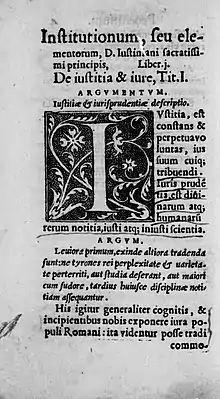 Institutionum, seu ele-
mentorum, D. Iustin. ani sacratiss.
mi principis, Liber.j.
De iustitia & iure, Tit.I.
ARGVMENTVM.
Iustitiæ & iurisprudentiæ descriptio.
IVstitia, est
constans &
perpetua vo
luntas, ius
suum cuiq;
tribuendi.
Iuris prudē
tia, est diui-
narum atq;
humanarū
rerum notitia, iusti atq; iniusti scientia.
ARGVM.
Leuiora primum, exinde altiora tradenda
sunt: ne tyrones rei perplexitate & varieta-
te perterriti, aut studia deserant, aut maiori
cum sudore, tardius huiusce disciplinæ noti
tiam assequantur.
His igitur generaliter cognitis, &
incipientibus nobis exponere iura po
puli Romani: ita videntur posse tradi
commo-